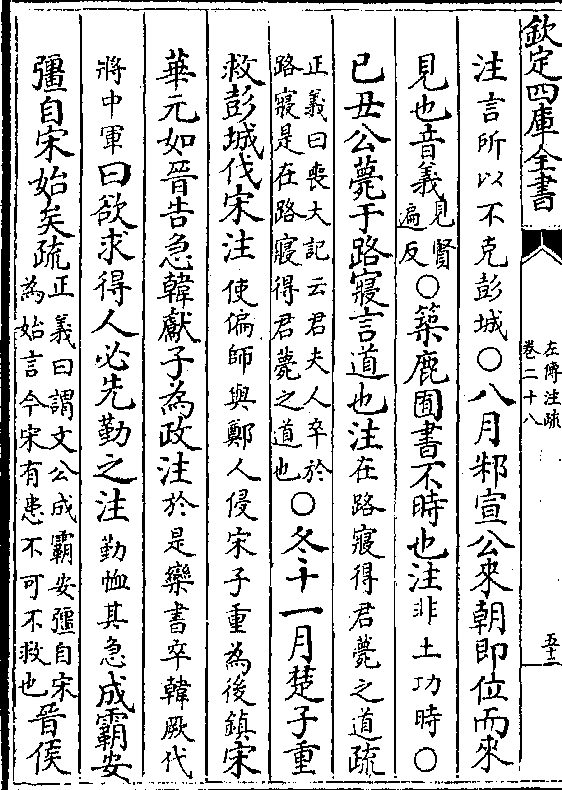 欽定四庫全書
左傳注疏
卷二十八
五十二
注言所以不克彭城○八月邾宣公來朝即位而來
見也音義見賢遍反○築鹿囿書不時也注非土功時○
己丑公薨于路寢言道也注在路寢得君薨之道疏
正義曰喪大記云君夫人卒於路寢是在路寢得君薨之道也○冬十一月楚子重
救彭城伐宋注使偏師與鄭人侵宋子重為後鎮宋
華元如晉告急韓獻子為政注於是欒書卒韓厥代
將中軍曰欲求得人必先勤之注勤恤其急成霸安
彊自宋始矣疏正義曰謂文公成霸安彊自宋為始言今宋有患不可不救也晉侯